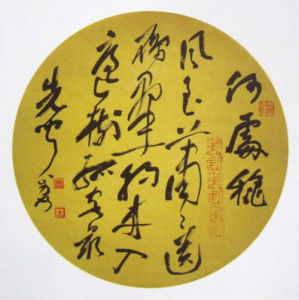 何處穐
風至蕭々送
雁羣朝來入
庭樹孤客最
先聞